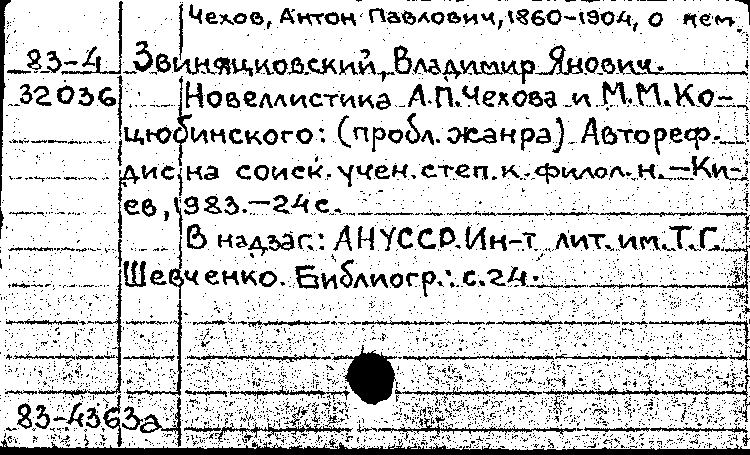 Чехов, Антон Павлович, 1860-1904, о нем
83-4 Звиняцковский, Владимир Янович.
32036 Новеллистика А.П.Чехова и М.М.Ко-
цюбинского: (пробл. жанра) Автореф.
дис. на соиск. учен. степ. к. филол. н. — Ки-
ев, 1983. — 24 с.
В надзаг.: АН УССР. Ин-т лит. им. Т.Г.
Шевченко. Библиогр.: с. 24.
83-4363а